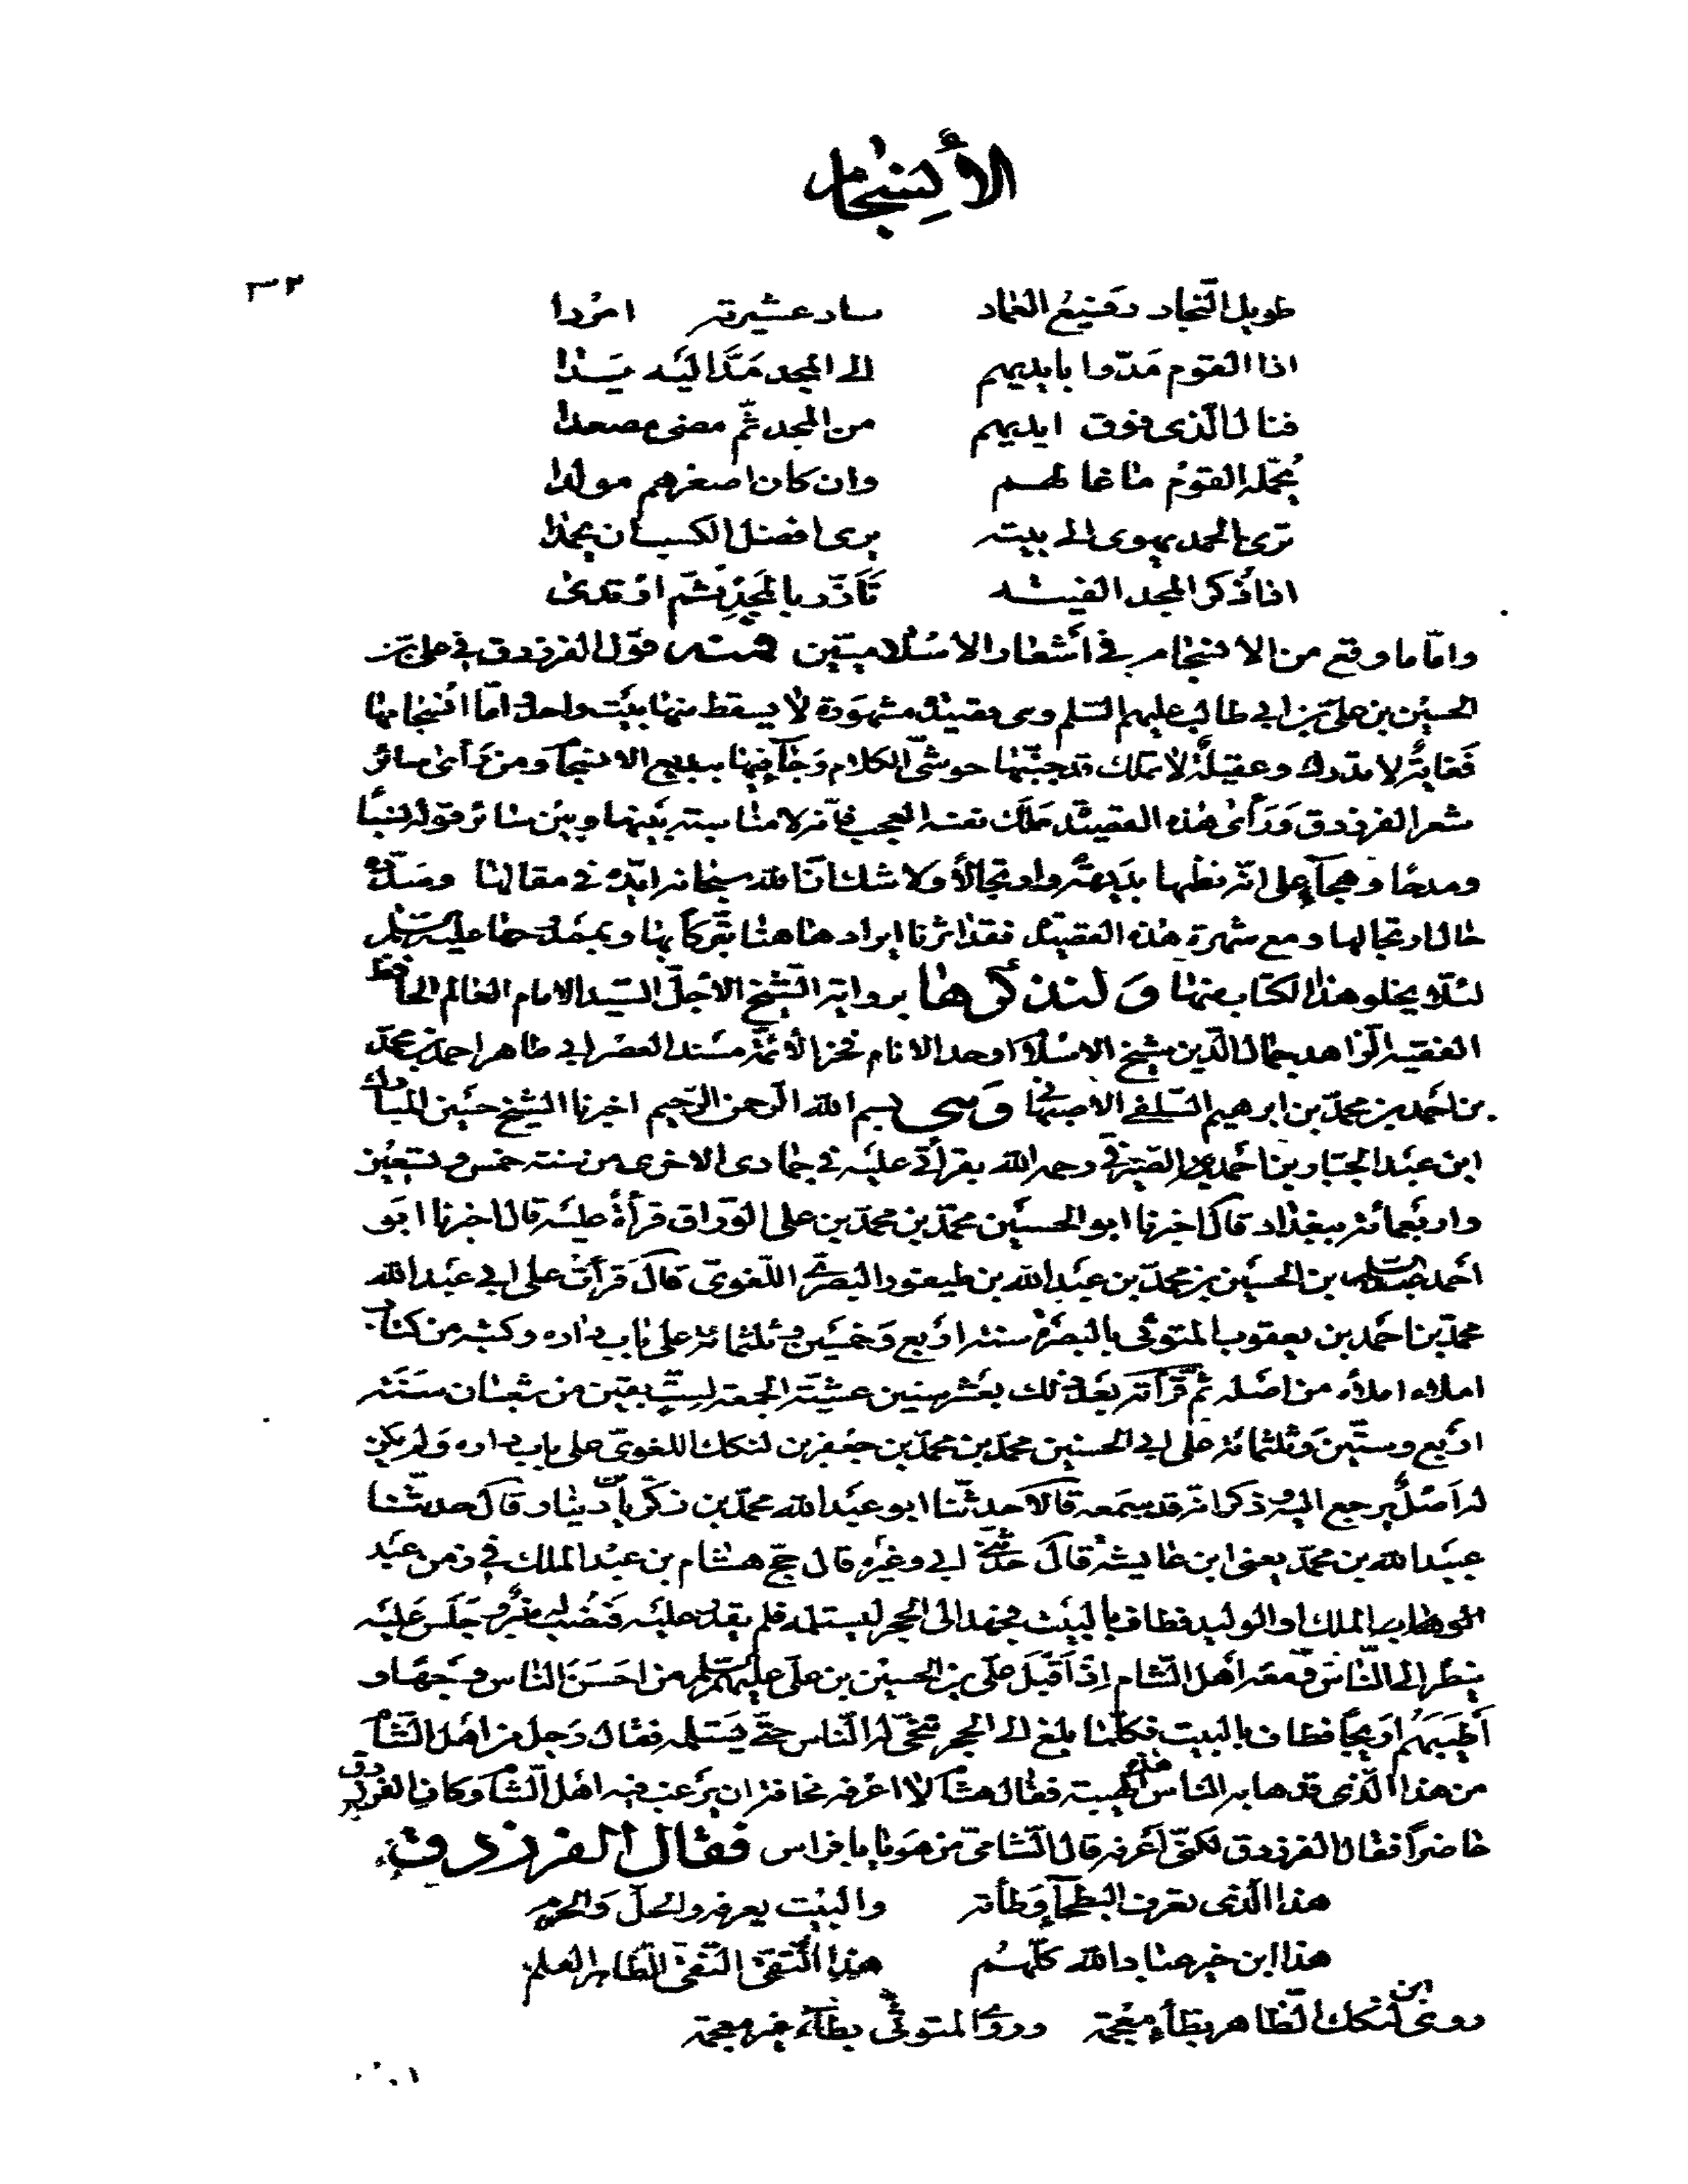 الأنسجام
٣٢
طويل النجاد رفيع العماد ساد عشيرته امردا
اذا القوم مدّوا بايديهم الى المجد مدّ اليه يدا
فنال الذى فوق ايديهم من المجد ثمّ مضى مصعدا
يُحمّله القومُ ما غالهم وان كان اصغرهم مولدا
ترى الحمد يهوى الى بيته يرى افضل الكسب ان يحمدا
اذا ذُكر المجد الفيته تأزّر بالمجدِ ثمّ ارتدى
وامّا ما وقع من الانسجام في أشعار الاسلاميّين فمنه قول الفرزدق في علىّ بن
الحسين بن علىّ بن ابي طالب عليهم السّلم وهى قصيدة مشهورة لا يسقط منها بيت واحد امّا انسجامها
فغاية لا تدرك وعقيلة لا تملك قد جنّبها حوشىّ الكلام وجاء فيها ببديع الانسجام ومن رأى سائر
شعر الفرزدق ورأى هذه القصيدة ملك نفسه العجب فانّه لا مناسبة بينها وبين سائر قوله نسيبًا
ومدحًا وهجاءً على انّه نظمها بديهةً وارتجالاً ولا شك انّ الله سبحانه ايّده في مقالها وسدّده
حال ارتجالها ومع شهرة هذه القصيدة فقد اثرنا ايرادها هنا تبرّكًا بها وبممدوحها عليه السّلم
لئلّا يخلو هذا الكتاب منها ولنذكرها برواية الشّيخ الاجلّ السّيد الامام العالم الحافظ
الفقيه الزاهد جمال الدّين شيخ الاسلام اوحد الانام فخر الأئمّة مسند العصر ابي طاهر احمد بن محمّد
بن احمد بن محمّد بن ابرهيم السّلفي الاصبهاني وهى بسم الله الرّحمن الرّحيم اخبرنا الشيخ حسين المبارك
ابن عبد الجبّار بن احمد الصّيرفيّ رحمه الله بقرأتي عليه في جمادى الاخرى من سنة خمس وتسعين
واربعمائة ببغداد قال اخبرنا ابو الحسين محمّد بن محمّد بن على الورّاق قرأةً عليه قال اخبرنا ابو
احمد عبد السّلم بن الحسين بن محمّد بن عبد الله بن طيفور البصرىّ اللّغوىّ قال قرأت على ابي عبد الله
محمّد بن احمد بن يعقوب المتوثى بالبصرة سنة اربع وخمسين وثلثمائة على باب داره وكتبته من كتابه
املاه املأً من اصله ثمّ قرأته بعد ذلك بعشر سنين عشيّة الجمعة لستّ بقين من شعبان سنة
اربع وستّين وثلثمائة على ابي الحسين محمّد بن محمّد بن جعفر بن لنكك اللغوىّ على باب داره ولم يكن
له اصلٌ يرجع اليه وذكر انّه قد سمعه قالا حدثنا ابو عبد الله محمّد بن زكريّا بن دينار قال حدثنا
عبيد الله بن محمّد يعنى ابن عايشة قال حدّثنى ابي وغيره قال حجّ هشام بن عبد الملك في زمن عبد
الملك او الوليد فطاف بالبيت فجهد الى الحجر ليستلمه فلم يقدر عليه فنُصب له منبر وجلس عليه
ينظر الى النّاس ومعه اهل الشام إذ اقبل علىّ بن الحسين بن علىّ عليهم السّلم من احسن الناس وجهًا و
أطيبهم أريجًا فطاف بالبيت فكلّما بلغ الى الحجر تنحّى له النّاس حتّى يستلمه فقال رجل من اهل الشّام
من هذا الّذى قد هابه الناس هذه الهيبة فقال هشام لا اعرفه مخافة ان يرغب فيه اهل الشّام وكان الفرزدق
حاضرًا فقال الفرزدق لكنّى أعرفه قال الشّامىّ من هو يا با فراس فقال الفرزدق
هذا الّذى تعرف البطحاء وطأته والبيت يعرفه والحلّ والحرم
هذا ابن خير عباد الله كلّهم هذا التّقىّ النّقىّ الطّاهر العلم
روى ابن لنكك الظّاهر بظاء معجمة وروى المتوثى بطاء غير معجمة